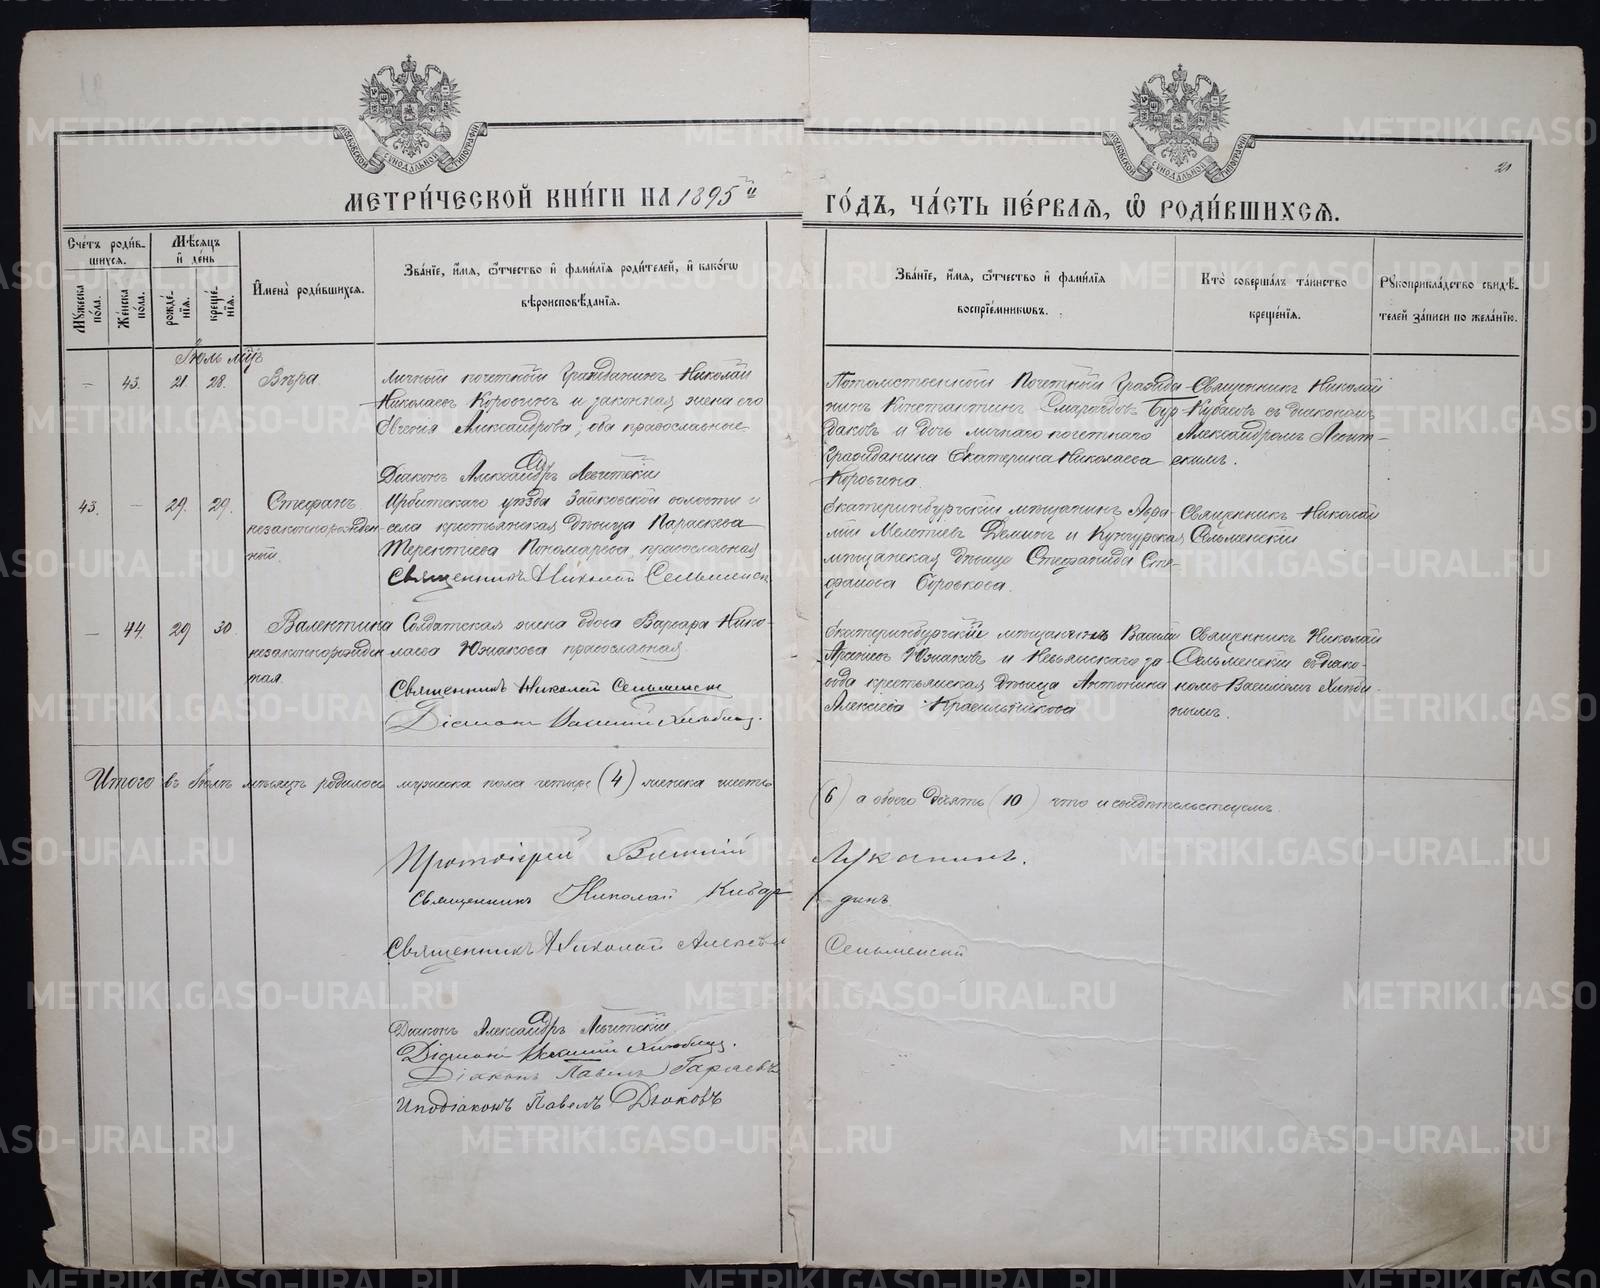 МЕТРИ́ЧЕСКОЙ КНИ́ГИ НА 1895й
ГО́ДЪ, ЧА́СТЬ ПЕ́РВАѦ, Ѿ РОДИ́ВШИХСѦ.
21
Сче́тъ роди́в-
шихсѧ.
Мꙋжеска по́ла.
Же́нска по́ла.
Мѣ́сѧцъ
и҆ де́нь
рожде́-
нїѧ.
креще́-
нїѧ.
И҆мена̀ роди́вшихсѧ.
Зва́нїе, и҆́мѧ, ѻ҆́тчество и҆ фами́лїѧ роди́телей, и҆ како́гѡ
вѣроисповѣ́данїѧ.
Зва́нїе, и҆́мѧ, ѻ҆́тчество и҆ фами́лїѧ
воспрїе́мникѡвъ.
Кто̀ соверша́лъ та́инство
креще́нїѧ.
Рꙋкоприкла́дство свидѣ́-
телей за́писи по жела́нїю.
Іюль мцъ
— 43. 21 28. Вѣра.
Личный почетный Гражданинъ Николай
Николаевъ Коровинъ и законная жена его
Евгенія Александрова, оба православные.
Діаконъ Александръ Левитскій
Потомственный Почетный Гражда-
нинъ Константинъ Смарагдовъ Бур-
даковъ и дочь личнаго почетнаго
Гражданина Екатерина Николаева
Коровина.
Священникъ Николай
съ діакономъ
Александромъ Левит-
скимъ.
43. — 29. 29. Стефанъ
незаконнорожден
ный.
Ирбитскаго уѣзда Зайковской волости и
села крестьянская дѣвица Параскева
Терентіева Пономарева, православная
Священникъ Николай Сельменск
Екатеринбургскій мѣщанинъ
Мелетіевъ Деминъ и Кунгурская
мѣщанская дѣвица Стефанида Сте-
фанова Боровкова.
Священникъ Николай
Сельменскій
— 44. 29 30. Валентина
незаконнорожден
ная.
Солдатская жена вдова Варвара Нико-
лаева Южакова православная.
Священникъ Николай Сельменск
Діаконъ Василий
Екатеринбургскій мѣщанинъ Василій
Южаковъ и Невьянскаго за-
вода крестьянская дѣвица Антонина
Алексіева Красильникова
Священникъ Николай
Сельменскій съ діако-
номъ Василіемъ
Итого въ Іюлѣ мѣсяцѣ родилось мужеска пола четыре (4) женска шесть
(6) а обоего десять (10) что и свидѣтельствуемъ.
Протоіерей Василій Луканинъ.
Священникъ Николай Кибар-
динъ
Священникъ Николай Алексѣев Сельменскій
Діаконъ Александръ Левитскій.
Діаконъ Василий
Діаконъ Павелъ Гаряевъ
Иподіаконъ Павелъ Дьяковъ
METRIKI.GASO-URAL.RU